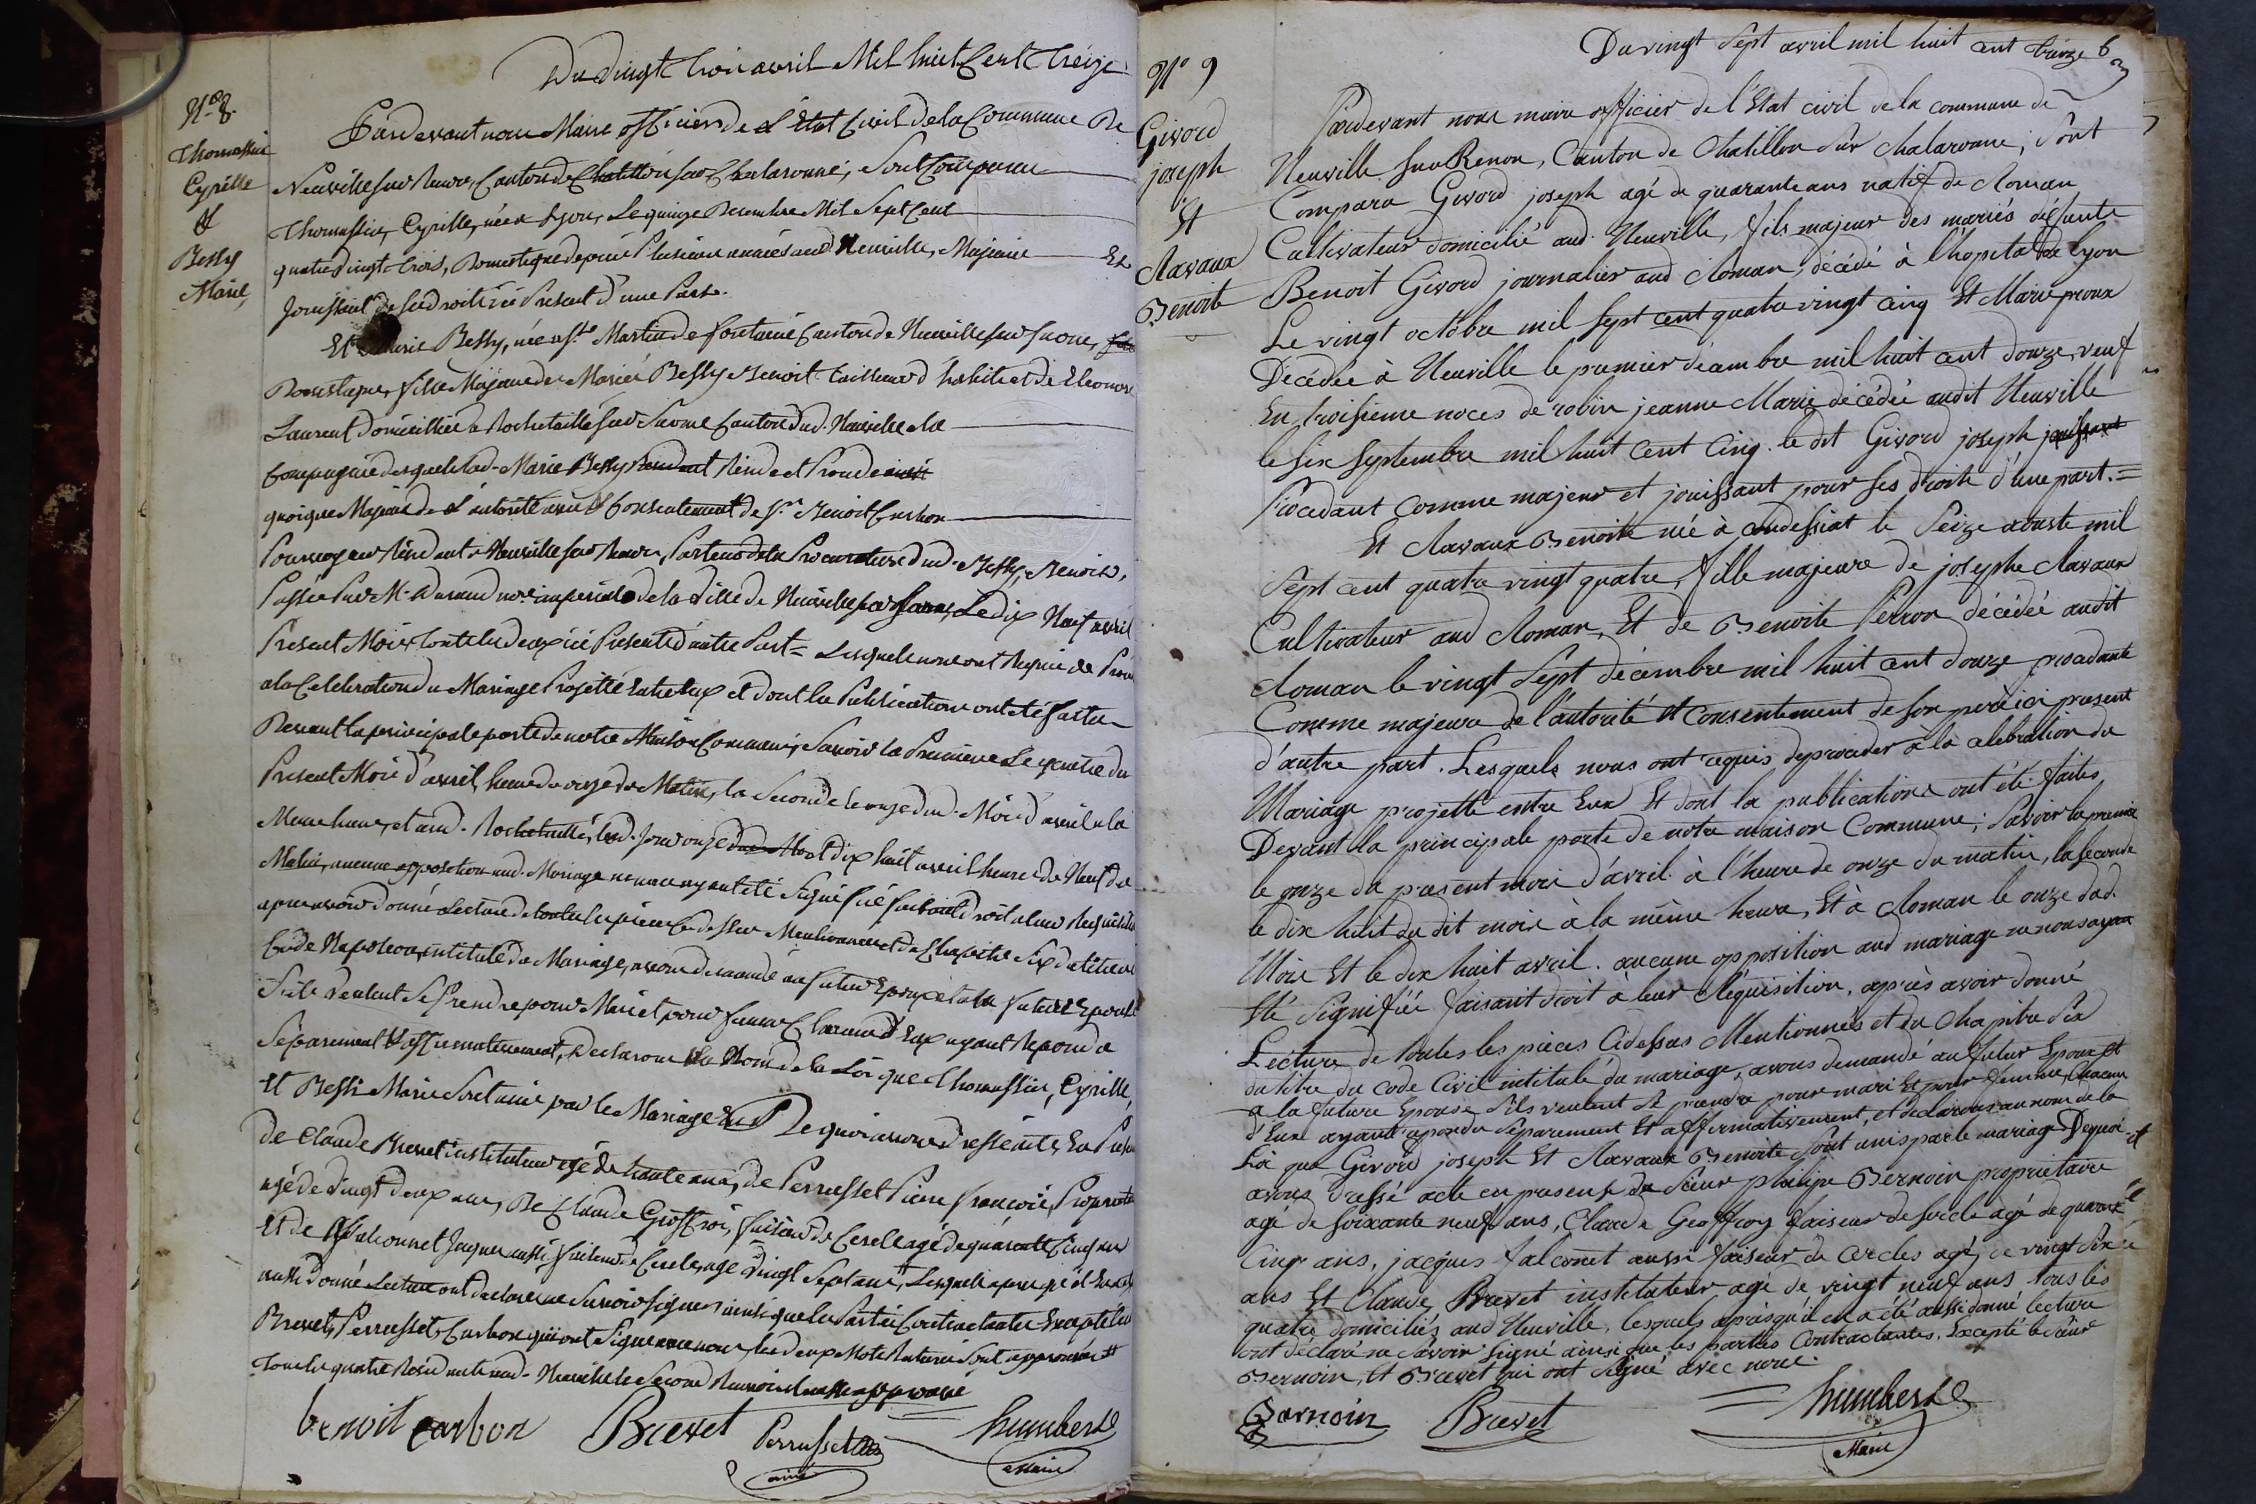 Du vingt trois avril Mil huit Cent Treize
N° 8.
Thomassin
Cyrille
&
Bessy
Marie,
Pardevant nous Maire officier de L'État Civil de la Commune De
Neuville sur Renon, Canton de Chatillon sur Chalaronne, Sont Comparus
Thomassin, Cyrille, née a Lyon, Le quinze Decembre Mil Sept Cent
quatre vingt trois, Domestique depuis Plusieurs années aud Neuville, Majeure Et
Jouissant de ses droits ici Present d'une Part.
Et Marie Bessy, née a St Martin de fontaine Canton de Neuville sur Saone,
Domestique, fille Majeure des Mariés Bessy Benoit tailleur d'habits et de Eleonore
Laurent Domicilliés a Rochetaillé sur Saone Canton dud. Neuville de la
Compagnie desquels lad. Marie Bessy Reside et Procede
quoique Majeure de L'autorité avis & Consentement de Sr. Benoit Carbon
Residant a Neuville sur Renon, Porteur de la Procuration dud. Bessy Benoit,
Passée Par Me Durand nore. imperial de la Ville de Neuville sur Saone, Le dix Neuf avril
Present Mois toutes les deux ici Presents d'autre Part = Lesquels nous ont Requis de Proceder
a la Celebration du Mariage Projetté Entre Eux et dont les Publications ont été faites
Devant la principale porte de notre Maison Commune, Savoir la Premiere Le quatre du
Present Mois d'avril, heure de onze du Matin, la Seconde le onze dud. Mois d'avril a la
Meme heure, et aud. Rochetaillé, lesd. Jour onze et dix huit avril heure de Neuf du
Matin, aucune opposition aud. Mariage ne nous ayant été Signifié faisant droit a leur Requisition
apres avoir donné Lecture de toutes les pieces Ci dessus Mentionnées et du Chapitre Six du titre du
Code Napoleon, intitulé du Mariage, avons demandé au futur Epoux et a la future Epouse
S'ils Veulent Se Prendre pour Mari et pour femme Chacun d'Eux ayant Repondu
Séparement & affirmativement, Declarons Au Nom de la Loi que Thomassin, Cyrille,
Et Bessi Marie Sont unis par le Mariage De quoi avons dressé acte, En Presence
de Claude Brevet instituteur agé de trente ans, de Perrusset Pierre François, Proprietaire
agé de Vingt deux ans, De Claude Geoffroi, faiseur de Cercle agé de quarante Cinq ans
Et de Falconnet Jaque aussi faiseur de Cercle, agé Vingt Sept ans, Lesquels apres qu'il En a été
aussi donné Lecture ont declaré ne Savoir Signer ainsi que les Parties Contractantes Excepté les
Brevet, Perrusset, Carbon qui ont Signé avec nous, les deux Mots Raturés Sont approuvés
Tous les quatre Residants aud. Neuville le Second Renvoi aussi approuvé
benoit carbon Brevet Perrusset ainé humbert Maire
6
Du vingt Sept avril mil huit cent treize
N° 9
Givord
joseph
Et
Ravaux
Benoite
Pardevant nous maire officier de l'État civil de la commune de
Neuville sur Renon, Canton de Chatillon Sur Chalaronne, Sont
Comparu Givord joseph agé de quarante ans natif de Roman
Cultivateur domicilié aud. Neuville, fils majeur des mariés défunts
Benoit Givord journalier aud Roman, décédé à l'hopital de Lyon
Le vingt octobre mil sept cent quatre vingt cinq Et Marie proux
Décédée à Neuville le premier décembre mil huit cent douze, veuf
En troisieme noces de robin jeanne Marie décédée audit Neuville
le six Septembre mil huit cent Cinq. le dit Givord joseph jouissant
Procedant comme majeur et jouissant pour ses droits d'une part. =
Et Ravaux Benoite née à Condessiat le Seize aouste mil
Sept cent quatre vingt quatre, fille majeure de josephe Ravaux
Cultivateur aud Roman, Et de Benoite Perron décédée audit
Roman le vingt Sept decembre mil huit cent douze procedante
Comme majeure de l'autorité Et consentement de son père ici present
d'autre part. Lesquels nous ont requis de proceder à la celebration du
Mariage projetté entre Eux Et dont la publications ont été faites
Devant la principale porte de notre maison Commune; Savoir la premiere
le onze du present mois d'avril à l'heure de onze du matin, la seconde
le dix huit du dit mois à la même heure, Et à Roman le onze dud.
Mois Et le dix huit avril. aucune opposition aud mariage ne nous ayant
Eté Signifiée faisant droit à leur Réquisition, après avoir donné
Lecture de toutes les pièces Cidessus Mentionnées et du Chapitre Six
du titre du code Civil intitulé du mariage, avons demandé au futur Epoux et
a la future Epouse S'ils veulent Se prendre pour mari Et pour femme, Chacun
d'Eux ayant repondu Séparement Et affirmativement, et declarons au nom de la
Loi que Givord joseph Et Ravaux Benoite Sont unis par le mariage Dequoi
avons dressé acte en presence du Sieur philipe Bernoin proprietaire
agé de soixante neuf ans, Claude Geoffroy faiseur de sercle agé de quarante
Cinq ans, jacques falconet aussi faiseur de cercles agé de vingt Six
ans Et Claude Brevet instituteur agé de vingt neuf ans tous les
quatre domiciliés aud Neuville, lesquels après qu'il en a été aussi donné lecture
ont déclaré ne savoir signé ainsi que les parties Contractantes. Excepté le Sieur
Bernoin, Et Brevet qui ont signé avec nous.
Bernoin Brevet humbert Maire